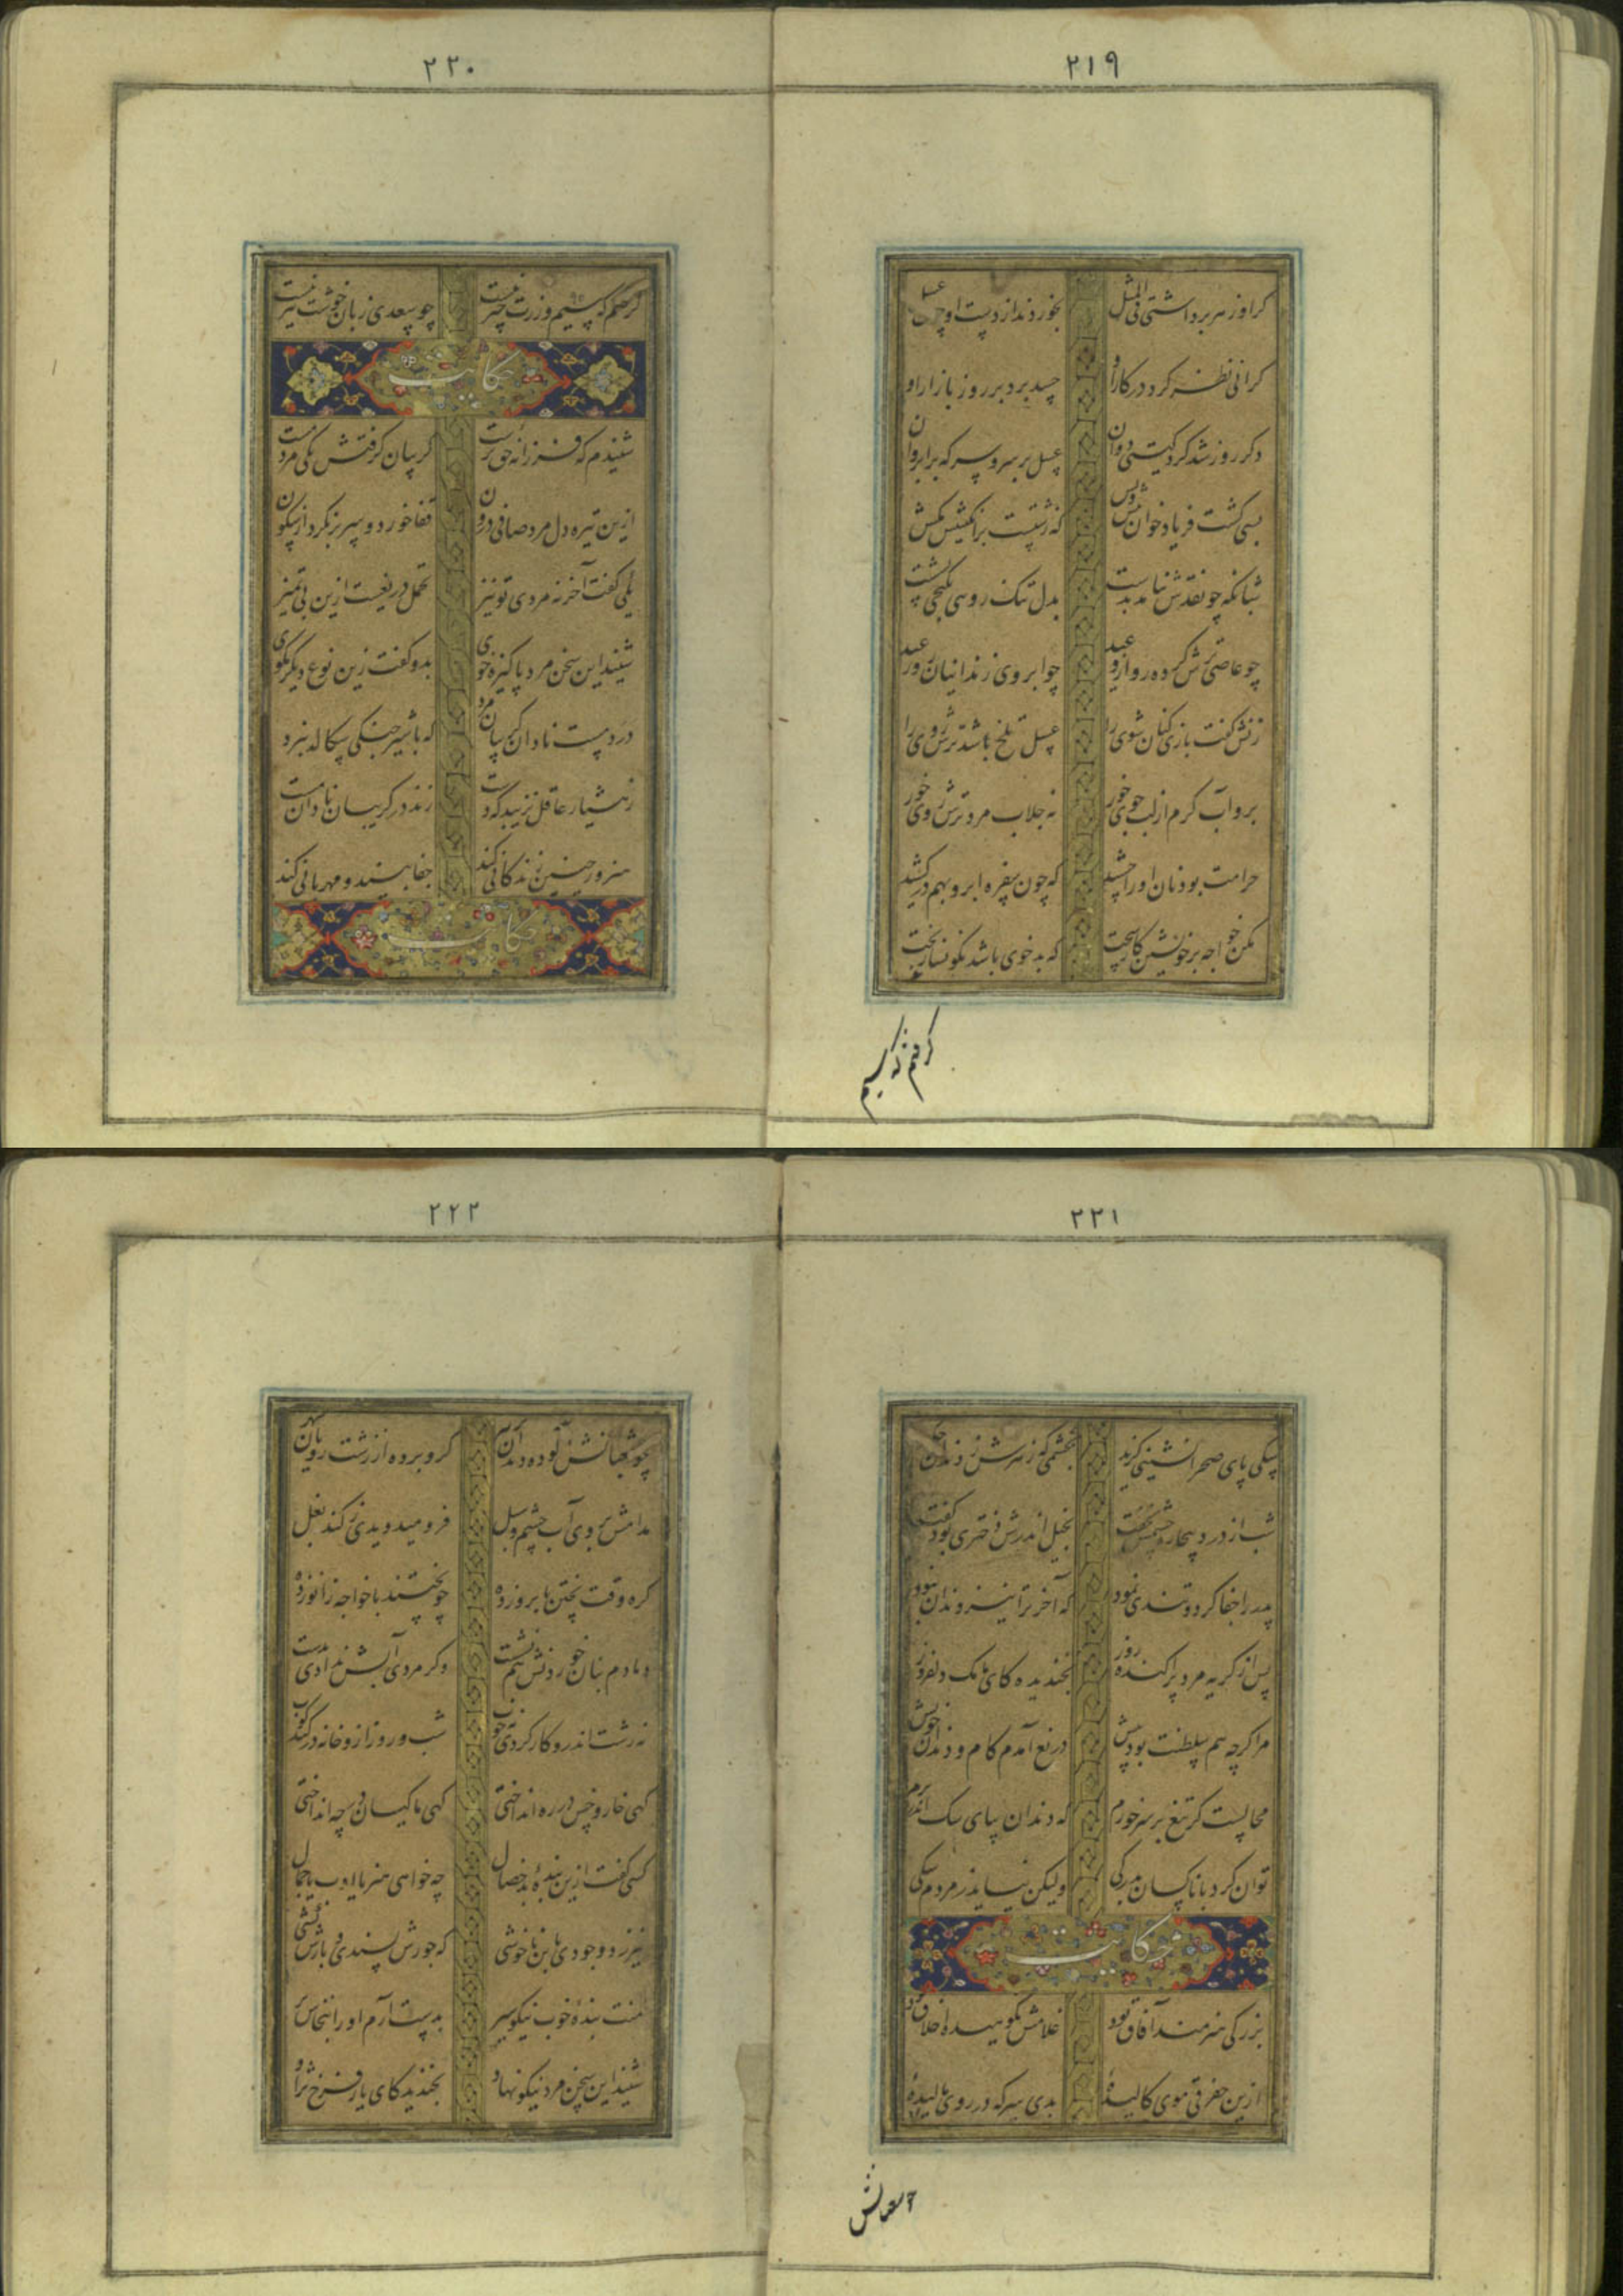 ۲۱۹
کر او زهر برداشتی فی المثل بخوردندی از دست او چون عسل
کرانی نظر کرد در کار او حسد برد بر روز بازار او
دکر روز شد کرد کیتی دوان عسل بر سر و سرکه بر ابروان
بسی کشت فریاد خوان پیش و پس که ننشست بر انکبینش مکس
شبانکه چو نقدش نیامد بدست بدل تنک رویی بکنجی نشست
چو عاصی ترش کرده روی از وعید چو ابروی زندانیان روز عید
زنش کفت بازی کنان شوی را عسل تلخ باشد ترش روی را
برو آب کرم از لب جوی خور نه جلاب مرد ترش روی خور
حرامت بود نان او را چشید که چون سفره ابرو بهم درکشید
مکن خواجه بر خویشتن کار سخت که بد خوی باشد نکونسار بخت
کرفتم که سیم
۲۲۰
کرفتم که سیم و زرت چیز نیست چو سعدی زبان خوشت نیز نیست
حکایت
شنیدم که فرزانه حق پرست کریبان کرفتش یکی مرد مست
ازین تیره دل مرد صافی درون قفا خورد و سر بر نکرد از سکون
یکی کفت آخر نه مردی تو نیز تحمل دریغست ازین بی تمیز
شنید این سخن مرد پاکیزه خوی بدو کفت زین نوع دیکر مکوی
درد مست نادان کریبان مرد که با شیر جنکی سکالد نبرد
ز هشیار عاقل نزیبد که دست زند در کریبان نادان مست
هنرور چنین زندکانی کند جفا بیند و مهربانی کند
حکایت
۲۲۱
سکی پای صحرا نشینی کزید بخشمی که زهرش ز دندان چکید
شب از درد بیچاره چشمش نخفت بخیل اندرش دختری بود کفت
پدر را جفا کرد و تندی نمود که آخر ترا نیز دندان نبود
پس از کریه مرد پراکنده روز بخندید کای مامک دلفروز
مرا کرچه هم سلطنت بود بیش دریغ آمدم کام و دندان خویش
محالست کر تیغ بر سر خورم که دندان بپای سک اندر برم
توان کرد با ناکسان بدرکی ولیکن نیاید ز مردم سکی
حکایت
بزرکی هنرمند آفاق بود غلامش نکوهیده اخلاق بود
ازین خفرقی موی کالیده بدی سرکه در روی مالیده
چو ثعبانش
۲۲۲
چو ثعبانش آلوده دندان بزهر کرو برده از زشت رویان شهر
مدامش بروی آب چشم و سبل فرو میدویدی ز کند بغل
کره وقت پختن بابرو زده چو پختند با خواجه زانو زده
دمادم بنان خوردنش هم نشست و کر مردی آبش ندادی بدست
نه زشت اندرو کار کردی نه خوب شب و روز ازو خانه در کند و کوب
کهی خار و خس در ره انداختی کهی ماکیان در چه انداختی
کسی کفت ازین بنده بد خصال چه خواهی هنر یا ادب یا جمال
نیرزد وجودی باین ناخوشی که جورش پسندی و بارش کشی
منت بنده خوب نیکو سیر بدست آرم او را بنخاس بر
شنید این سخن مرد نیکو نهاد بخندید کای یار فرخ نژاد